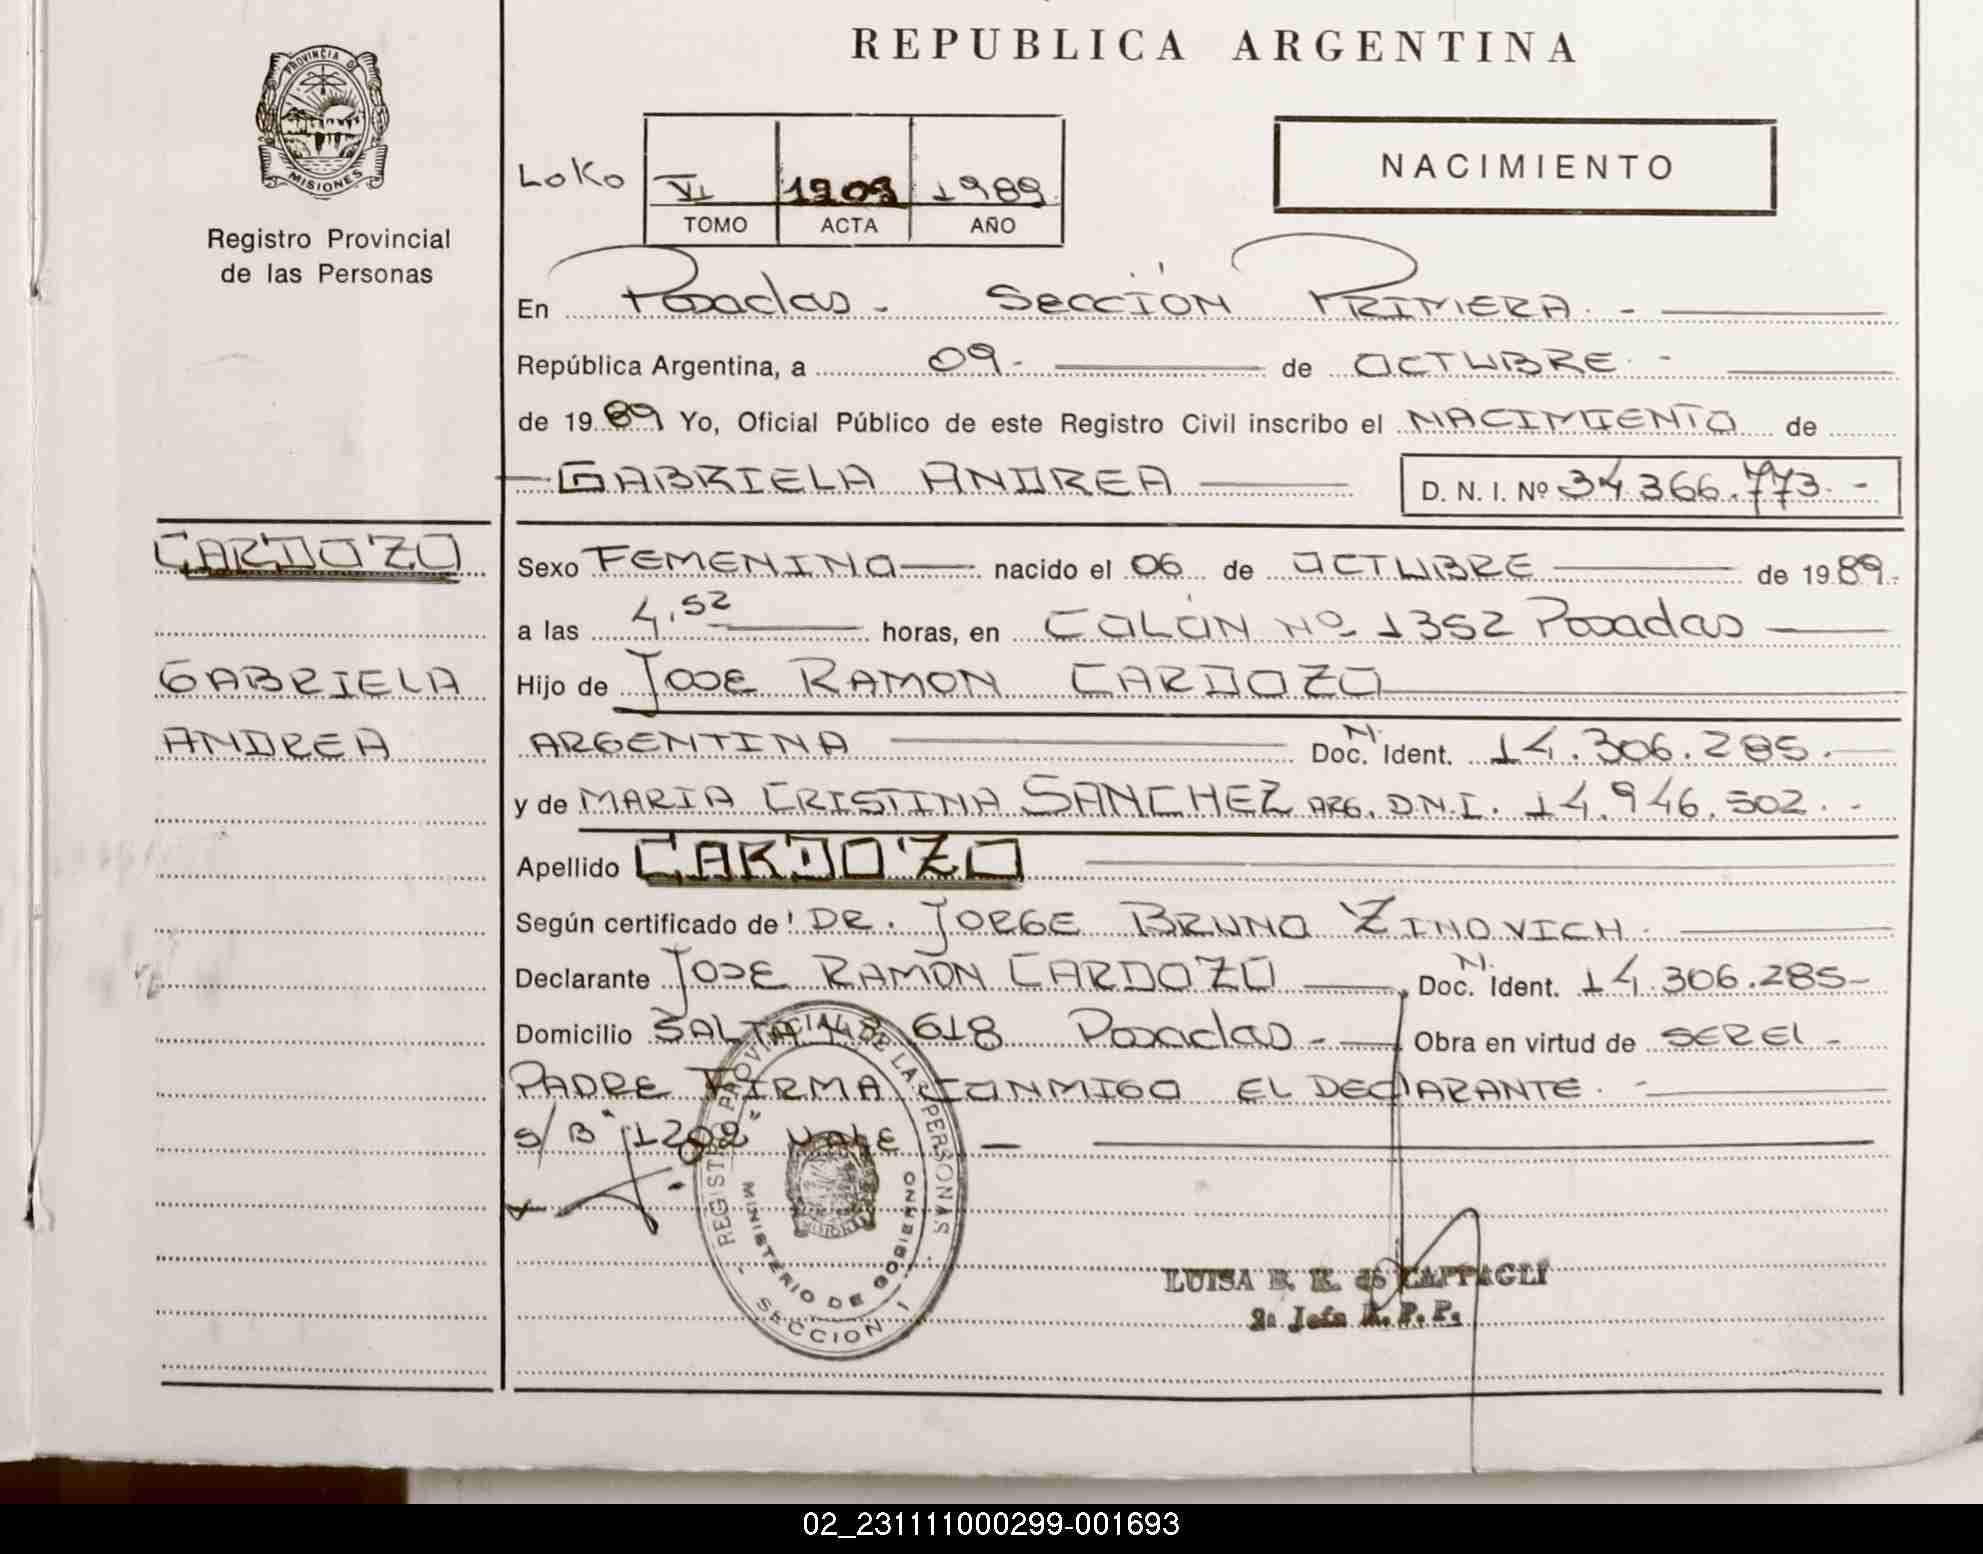 REPUBLICA ARGENTINA
PROVINCIA DE
MISIONES
Registro Provincial
de las Personas
LOKO
VI 1209 1989
TOMO ACTA AÑO
NACIMIENTO
En Posadas - SECCIÓN PRIMERA. -
República Argentina, a 09- de OCTUBRE -
de 1989 Yo, Oficial Público de este Registro Civil inscribo el NACIMIENTO de
GABRIELA ANDREA D. N. I. Nº 34.366.773. -
CARDOZO
GABRIELA
ANDREA
Sexo FEMENINO nacido el 06 de OCTUBRE de 1989.
a las 4,52 horas, en COLÓN Nº 1352 Posadas
Hijo de JOSE RAMON CARDOZO
ARGENTINA Doc. N. Ident. 14.306.285.
y de MARIA CRISTINA SANCHEZ ARG. D.N.I. 14.946.502. -
Apellido CARDOZO
Según certificado de DR. JORGE BRUNO ZINOVICH.
Declarante JOSE RAMÓN CARDOZO Doc. N. Ident. 14.306.285-
Domicilio SALTA Nº 618 Posadas - Obra en virtud de SER EL -
PADRE FIRMA CONMIGO EL DECLARANTE. -
S/B "1209 VALE
REGISTRO PROVINCIAL DE LAS PERSONAS
MINISTERIO DE GOBIERNO
MISIONES
SECCION 1
LUISA B. K. de CAPPAGLI
2a Jefa R. P. P.
02_231111000299-001693